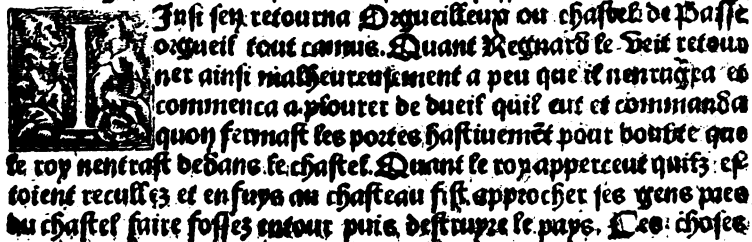 IInsi sen retourna Orgueilleux ou chastel de Passe
orgueil tout camus. Quant Regnard le veit retour
ner ainsi malheureusement a peu que il nenragea et
commenca a plourer de dueil quil eut et commanda
quon fermast les portes hastiuemēt pour doubte que
le roy nentrast dedans le chastel. Quant le roy apperceut quilz es
toient recullez et enfuys au chasteau fist approcher ses gens pres
du chastel faire fossez entour puis destruyre le pays. Ces choses